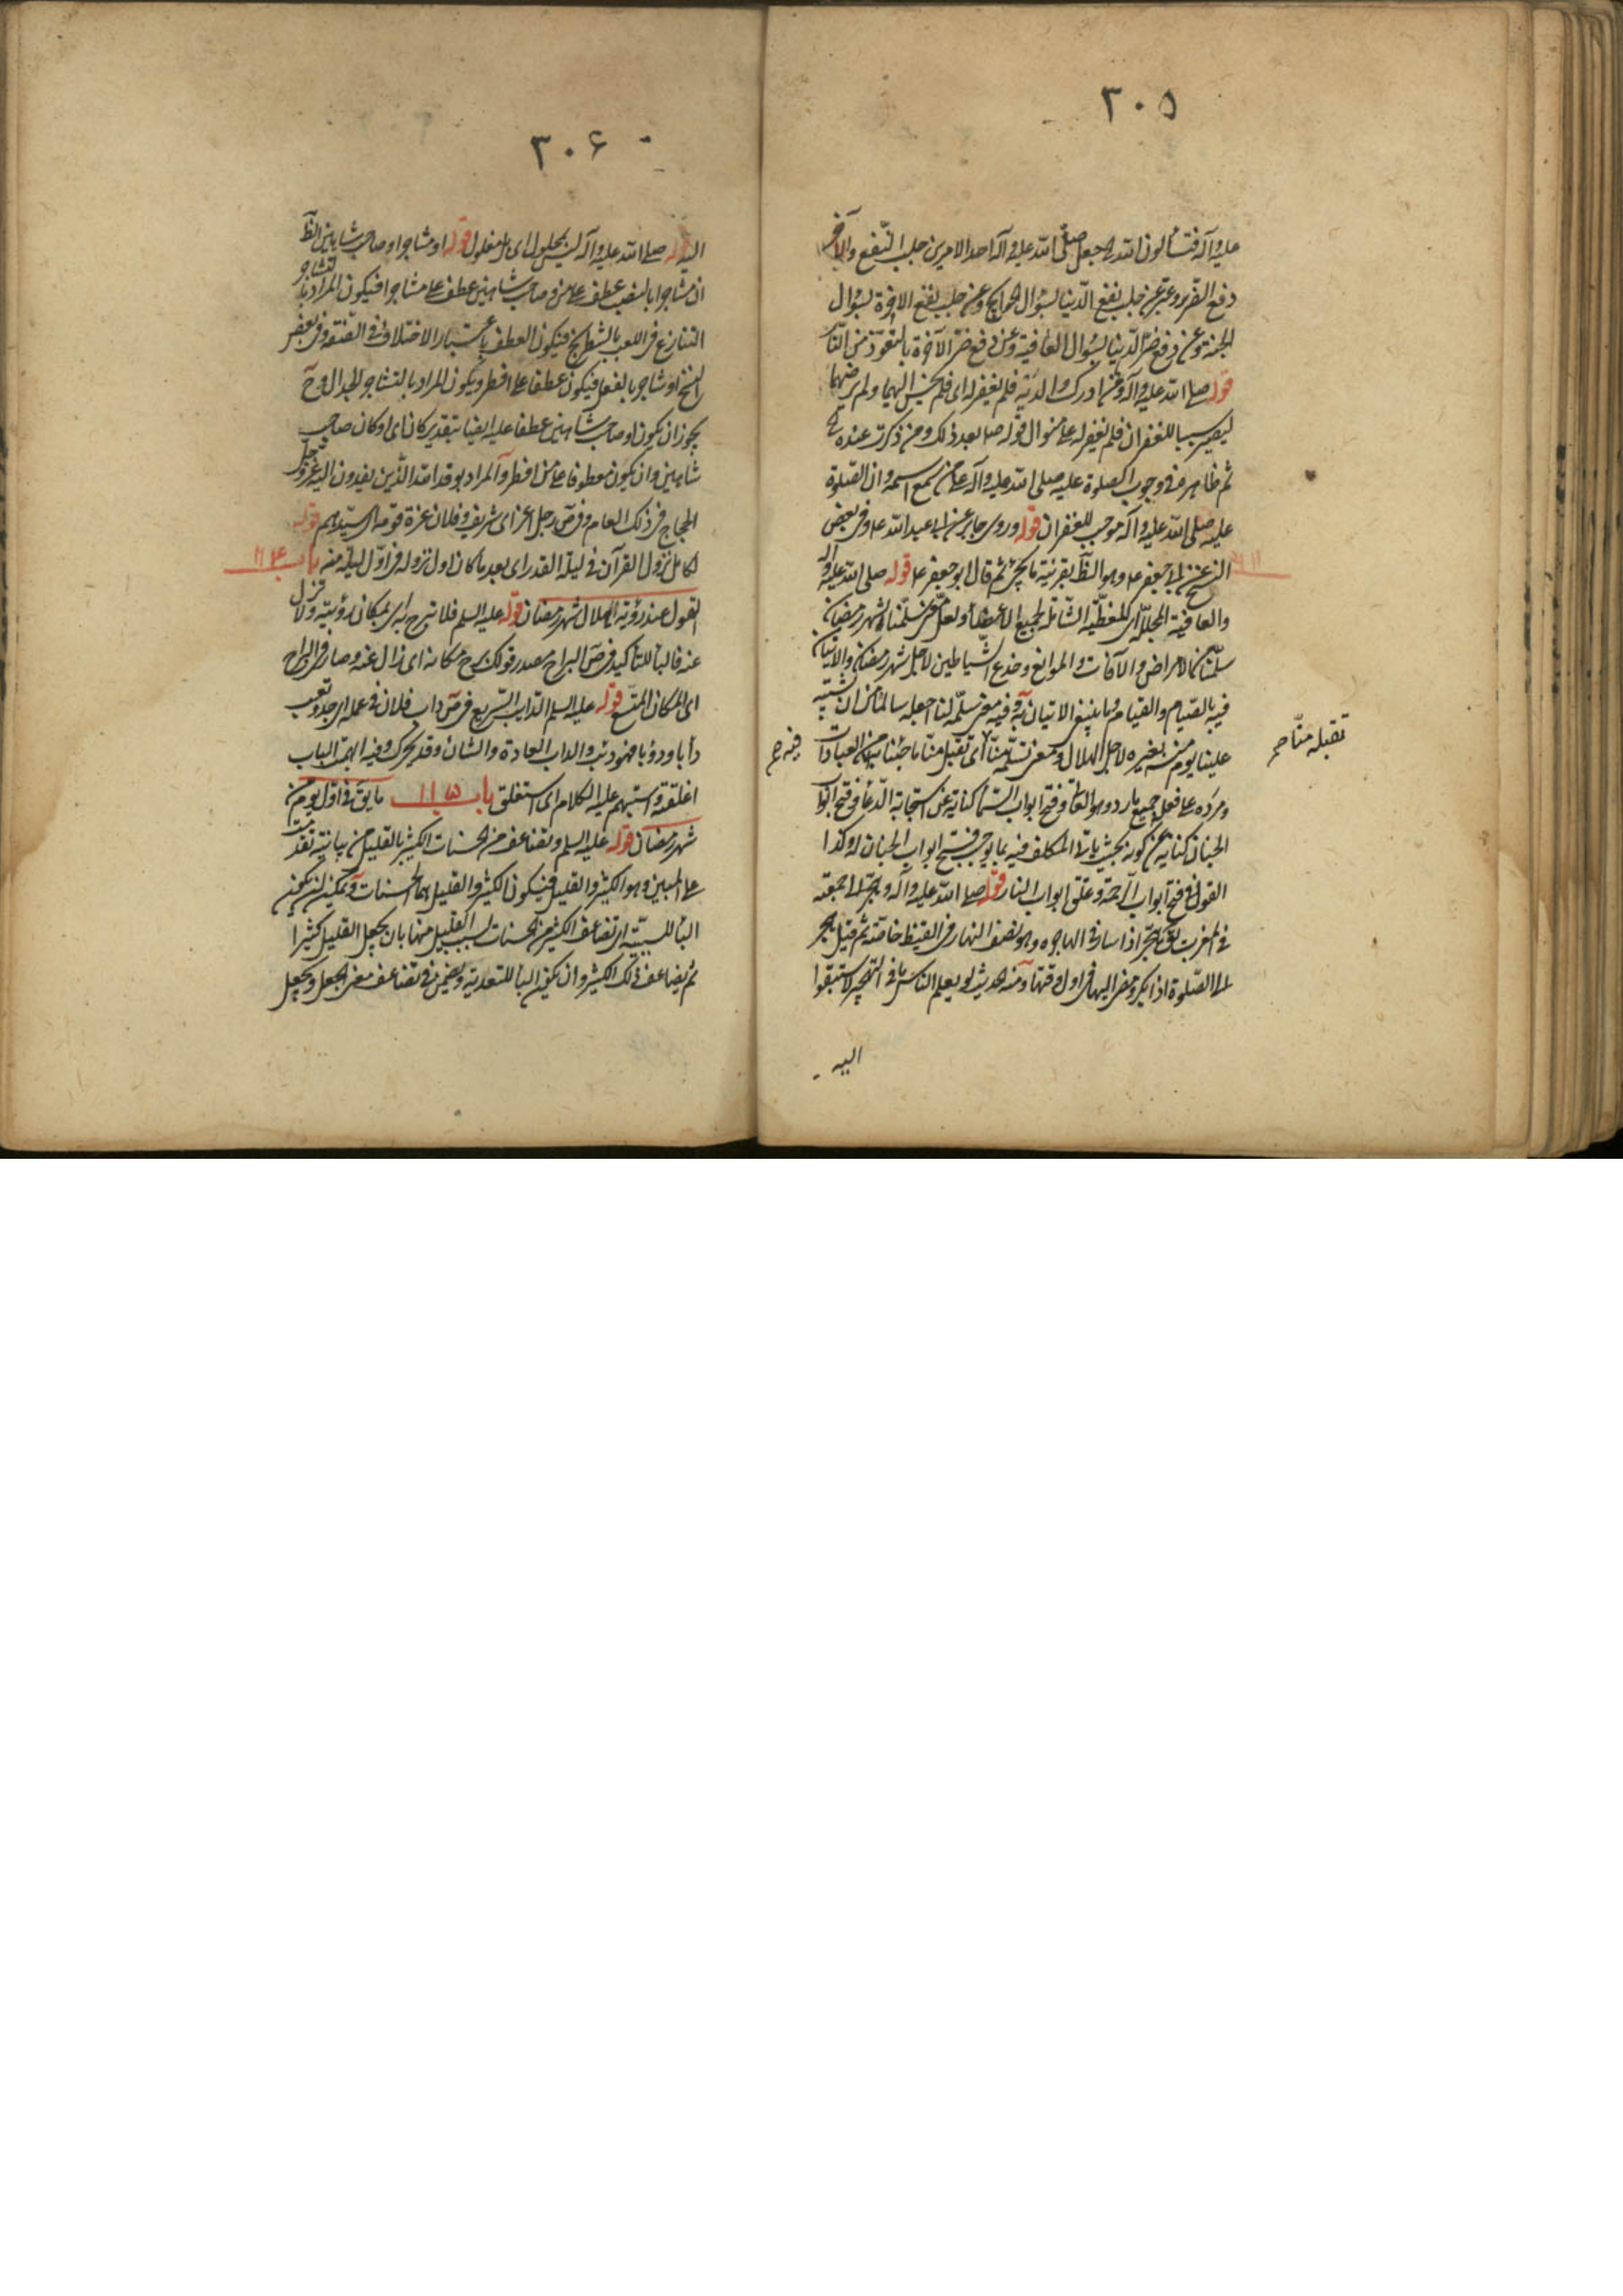 ٣٠٥
عليه وآله فتسألون الله الخ جعل صلى الله عليه وآله احد الامرين جلب النفع والآخر
دفع الضرر وعبر عن جلب نفع الدنيا بسؤال الحوائج وعن جلب نفع الاخرة بسؤال
الجنة وعن دفع ضر الدنيا بسؤال العافية وعن دفع ضر الآخرة بالتعوذ من النار
قوله صلى الله عليه وآله ومن ادرك والديه فلم يغفر له اى فلم يحسن اليهما ولم يرضهما
ليصير سببا للغفران فلم يغفر له على منوال قوله صلى بعد ذلك ومن ذكرت عنده الخ
ثم ظاهره فى وجوب الصلوة عليه صلى الله عليه وآله على من سمع اسمه وان الصلوة
عليه صلى الله عليه وآله موجب للغفران قوله وروى جابر عن ابى عبد الله ع وفى بعض
النسخ عن ابى جعفر ع وهو الظ بقرينة ما يجئ ثم قال ابو جعفر ع قوله صلى الله عليه وآله
والعافية المجللة اى المغطية الشاملة لجميع الاعضاء ولعل معنى سلمنا لشهر رمضان
سلمنا من الامراض والآفات والموانع وخدع الشياطين لاجل شهر رمضان والاتيان
فيه بالصيام والقيام وما ينبغى الاتيان به وفيه معنى سلمه لنا اجعله سالما لنا من ان يشتبه
علينا يوم منه بغيره لاجل الهلال ومعنى تسلمه منا اى تقبل منا ما جئنا به من العبادات
تقبله منا صح
فيه صح
ومرده على فعل جميع بارد وهو العاق وفتح ابواب السماء كناية عن استجابة الدعاء وفتح ابواب
الجنان كناية عن كونه بحيث ياتى المكلف فيه بما يوجب فتح ابواب الجنان له وكذا
القول فى فتح ابواب الرحمة وغلق ابواب النار قوله صلى الله عليه وآله وهجر الى جمعته
فى المغرب يق هجر اذا سار فى الهاجرة وهو نصف النهار فى القيظ خاصة ثم قيل هجر
الى الصلوة اذا بكر ومضى اليها فى اول وقتها ومنه الحديث لو يعلم الناس ما فى التهجير لاستبقوا
اليه
٣٠۶
اليه قوله صلى الله عليه وآله ليس بمحلول اى بل مغلول قوله او مشاجرا وصاحب شاهين الظ
ان مشاجرا بالنصب عطف على من وصاحب شاهين عطف على مشاجرا فيكون المراد بالتشاجر
التنازع فى اللعب بالشطرنج فيكون العطف باعتبار الاختلاف فى الصفة وفى بعض
النسخ او شاجر بالفعل فيكون عطفا على افطر ويكون المراد بالتشاجر الجدال وح
يجوز ان يكون او صاحب شاهين عطفا عليه ايضا بتقدير كان اى او كان صاحب
شاهين وان يكون معطوفا على من افطر والمراد بوفد الله الذين يفدون اليه عز وجل
الحجاج فى ذلك العام وفى ص رجل اعز اى شريف وفلان غرة قومه اى سيدهم قوله
كامل نزول القرآن فى ليلة القدر اى بعد ما كان اول نزوله فى اول ليلة منه باب ١١۴
القول عند رؤية الهلال شهر رمضان قوله عليه السلم فلا تبرح اى بمكان رؤيته ولا تزل
عنه فالباء للتأكيد فى ص البراح مصدر قولك برح مكانه اى زال عنه وصار فى البراح
اى المكان المتسع قوله عليه السلم الدايب السريع فى ص داب فلان فى عمله اى جد وتعب
دأبا ودؤبا فهو دئب والداب العادة والشان وقد يحرك وفيه ابهمت الباب
اغلقته واستبهم عليه الكلام اى استغلق باب ١١۵ ما يق فى اول يوم من
شهر رمضان قوله عليه السلم وتضاعف من الحسنات الكثير بالقليل من بيانية تقدمت
على المبين وهو الكثير والقليل فيكون الكثير والقليل هما الحسنات ويمكن ان يكون
الباء للسببية اى تضاعف الكثير من الحسنات بسبب القليل منها بان يجعل القليل كثيرا
ثم يضاعف ذلك الكثير وان يكون الباء للتعدية ويضمن فى تضاعف معنى الجعل ويجعل